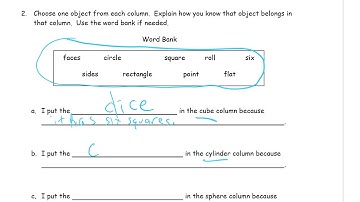 2. Choose one object from each column. Explain how you know that object belongs in
that column. Use the word bank if needed.
Word Bank
faces circle square roll six
sides rectangle point flat
a. I put the dice in the cube column because
it has six squares.
b. I put the C in the cylinder column because
c. I put the in the sphere column because